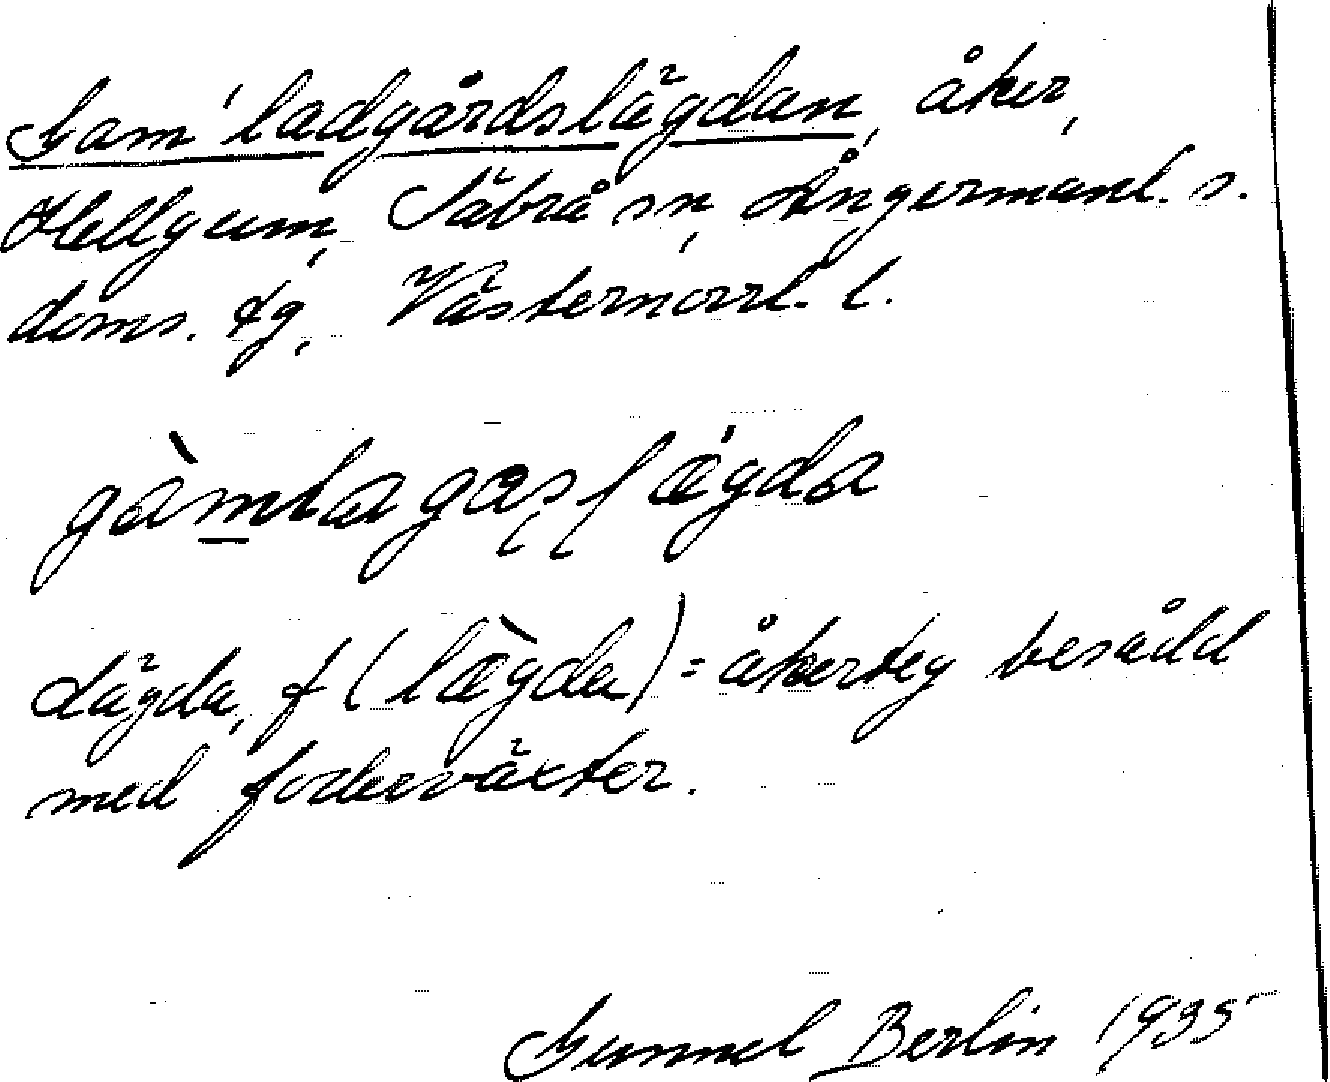 Gam'ladgårdslägdan, åker,
Hellgum, Säbrå sn, Ångermanl. s.
doms. tg, Västernorrl. l.
Lägda, f (læ̀gda) = åkerteg besådd
med foderväxter.
Gunnel Berlin 1935